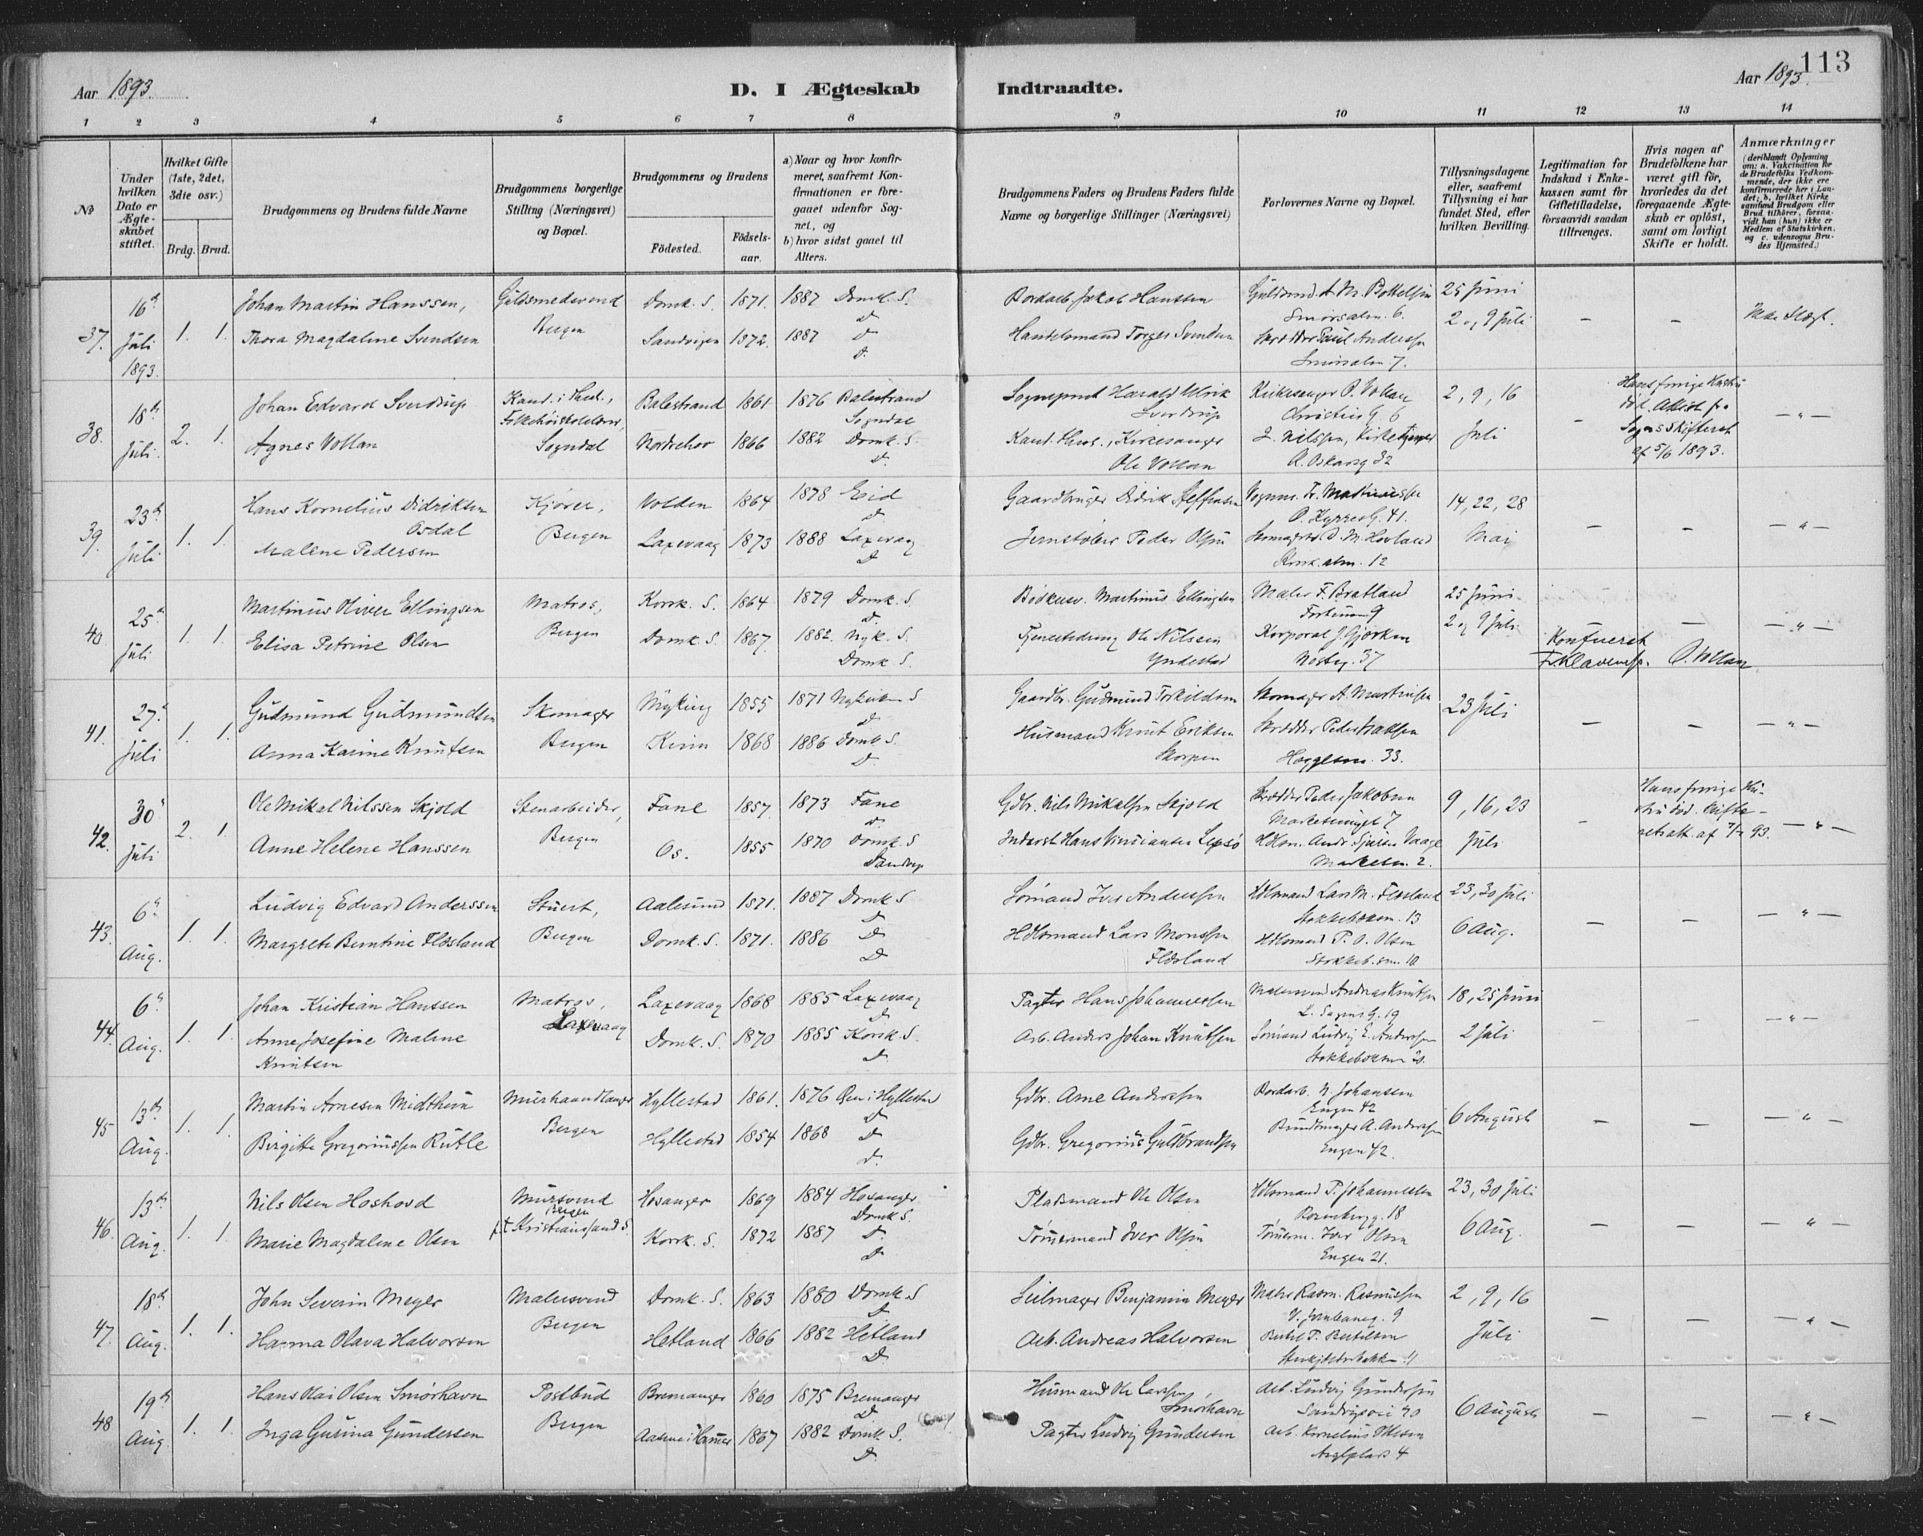 Aar 1893.
D. I Ægteskab
Indtraadte.
Aar 1893.
113
1 2 3 4 5 6 7 8 9 10 11 12 13 14
No
Under hvilken Dato er Ægteskabet stiftet.
Hvilket Gifte (1ste, 2det, 3die osv.)
Brdg. Brud.
Brudgommens og Brudens fulde Navne
Brudgommens borgerlige Stilling (Næringsvei) og Bopæl.
Brudgommens og Brudens
Fødested.
Fødselsaar.
a) Naar og hvor konfirmeret, saafremt Konfirmationen er foregaaet udenfor Sognet, og
b) hvor sidst gaaet til Alters.
Brudgommens Faders og Brudens Faders fulde Navne og borgerlige Stillinger (Næringsvei)
Forlovernes Navne og Bopæl.
Tillysningsdagene eller, saafremt Tillysning ei har fundet Sted, efter hvilken Bevilling.
Legitimation for Indskud i Enkekassen samt for Giftetilladelse, forsaavidt saadan tiltrænges.
Hvis nogen af Brudefolkene har været gift før, hvorledes da det foregaaende Ægteskab er opløst, samt om lovligt Skifte er holdt.
Anmærkninger
(deriblandt Oplysning om: a. Vakcination for de Brudefolks Vedkommende, der ikke ere konfirmerede her i Landet; b. hvilket Kirkesamfund Brudgom eller Brud tilhører, forsaavidt han (hun) ikke er Medlem af Statskirken, og c. udensogns Brudes Hjemsted.)
37. 16de Juli 1893. 1. 1.
Johan Martin Hanssen, Guldsmedsvend Domk. S. 1871. 1887 Domk. S. Jakob Hanssen Smørsalm. 6. 25 Juni
Thora Magdalene Svendsen Bergen Sandvigen 1872. 1887 D Torger Svendsen Skrædder Paul Anderssen Smørsalm 7. 2 og 9 Juli
38. 18de Juli 2. 1.
Johan Edvard Sverdrup Kand. i Theol., Folkehøiskolelærer, Balestrand 1861 1876 Balestrand Sogndal Sogneprest Harald Ulrik Sverdrup Kirkesanger O. Vollan Christies G. 6 2, 9, 16
Agnes Vollan Sogndal Norderhov 1866 1882 Domk. S. D. Kand. theol., Kirkesanger Ole Vollan J. Nilssen, Kirketjener O. Oskarsg 32 Juli
Hans forrige Hustru død. Attest fra Sogns Skifteret af 5/6 1893.
39. 23de Juli 1. 1.
Hans Kornelius Didriksen Osdal Kjører, Volden 1864 1878 Eid D Gaardbruger Didrik Steffensen O. Kyrresg. 41. 14, 22, 28
Malene Pedersen Bergen Laxevaag 1873 1888 Laxevaag D Jernstøber Peder Olsen Skomager O. M. Hovland Korsk. alm. 12 Mai
40 25de Juli 1. 1.
Martinus Oliver Ellingsen Matros, Korsk. S. 1864 1879 Domk. S. D. Martinus Ellingsen Maler F. Bratland Fortunen 9 25 Juni
Elisa Petrine Olsen Bergen Domk. S. 1867. 1882. Nyk. S. Domk S. Ole Nilssen Yndestad Korporal J. Gjerken Nostg. 37 2 og 9 Juli
Konfereret O. Vollan
41. 27de Juli 1. 1.
Gudmund Gudmundsen Skomager Myking 1855 1871 Nykirkens S D Gaardbr. Gudmund Torkildsen Skomager A. Martinsen 23 Juli
Anna Karine Knutsen Bergen Kinn 1868 1886 Domk S. D. Husmand Knut Eriksen Skorpen Skrædder Peder Haggesm. 33.
42. 30 Juli 2. 1
Ole Mikal Nilssen Skjold Stenarbeider, Fane 1857. 1873 Fane D. Gdbr. Nils Mikalsen Skjold Skrædder Peder Jakobsen Markesmuget 7 9, 16, 23
Anne Helene Hanssen Bergen Os. 1855 1870 Domk. S Inderst Hans Lepsø HHdm. Andr. Vaage Markesm. 2. Juli
Hans forrige Hustru død. Skifteretsatt. af 7/7 93.
43. 6te Aug. 1. 1.
Ludvig Edvard Anderssen Stuert, Aalesund 1871. 1887 Domk S D Sømand Iver Anderssen Lars M. Flesland Stokkeboksm. 13 23, 30 Juli
Margrete Berntine Flesland Bergen Domk. S. 1871. 1886 D D Lars Monssen Flesland P. O. Olsen Stokkeb. sm. 10 6 Aug.
44. 6te Aug. 1. 1.
Johan Kristian Hanssen Matros, Laxevaag 1868 1885 Laxevaag D Pagter Hans Johannessen Malersvend Andreas Knutsen L. Sagens G. 19 18, 25 Juni
Anne Josefine Malene Knutsen Laxevaag Domk. S. 1870 1885 Korsk. S. D Arb. Anders Johan Knutsen Sømand Ludvig E. Anderssen Stokkeboksm 20. 2 Juli
45 13de Aug. 1. 1.
Martin Arnesen Midthun Murhaandlanger Hyllestad 1861. 1876 Øen i Hyllestad D Gdbr. Arne Anderssen Bordarb. N. Johansen Engen 42 6 August
Birgitte Gregoriussen Rutle Bergen Hyllestad 1854 1868 D D. Gdbr. Gregorius Guldbrandsen Bundtmager A. Anderssen Engen 42.
46. 13de Aug. 1. 1.
Nils Olsen Hoshovd Mursvend Bergen Hosanger 1869 1884 Hosanger Domk S. Pladsmand Ole Olsen P. Johannessen Rosenbergg. 18 23, 30 Juli
Marie Magdalene Olsen p.t. Kristianssand S. Korsk. S. 1872 1887 D D Tømmermand Iver Olsen Tømerm. Iver Olsen Engen 21. 6 Aug.
47. 18de Aug. 1. 1.
John Severin Meyer Malersvend Domk. S. 1863 1880 Domk. S D Seilmager Benjamin Meyer Maler Rasm. Rasmussen 9 2, 9, 16
Hanna Olava Halvorsen Bergen Hetland 1866 1882 Hetland D Arb. Andreas Halvorsen Bertel T. Bertelsen 11 Juli
48 19de Aug. 1. 1.
Hans Olai Olsen Smørhavn Postbud Bremanger 1860 1875 Bremanger D Husmand Ole Larssen, Smørhavn Arb. Ludvig Gundersen Sandvigsvei 40 6 August
Inga Gurina Gundersen Bergen Aasene i Hammer 1867 1882 Domk S. D Pagter Ludvig Gundersen Arb. Kornelius Ohlsen 4